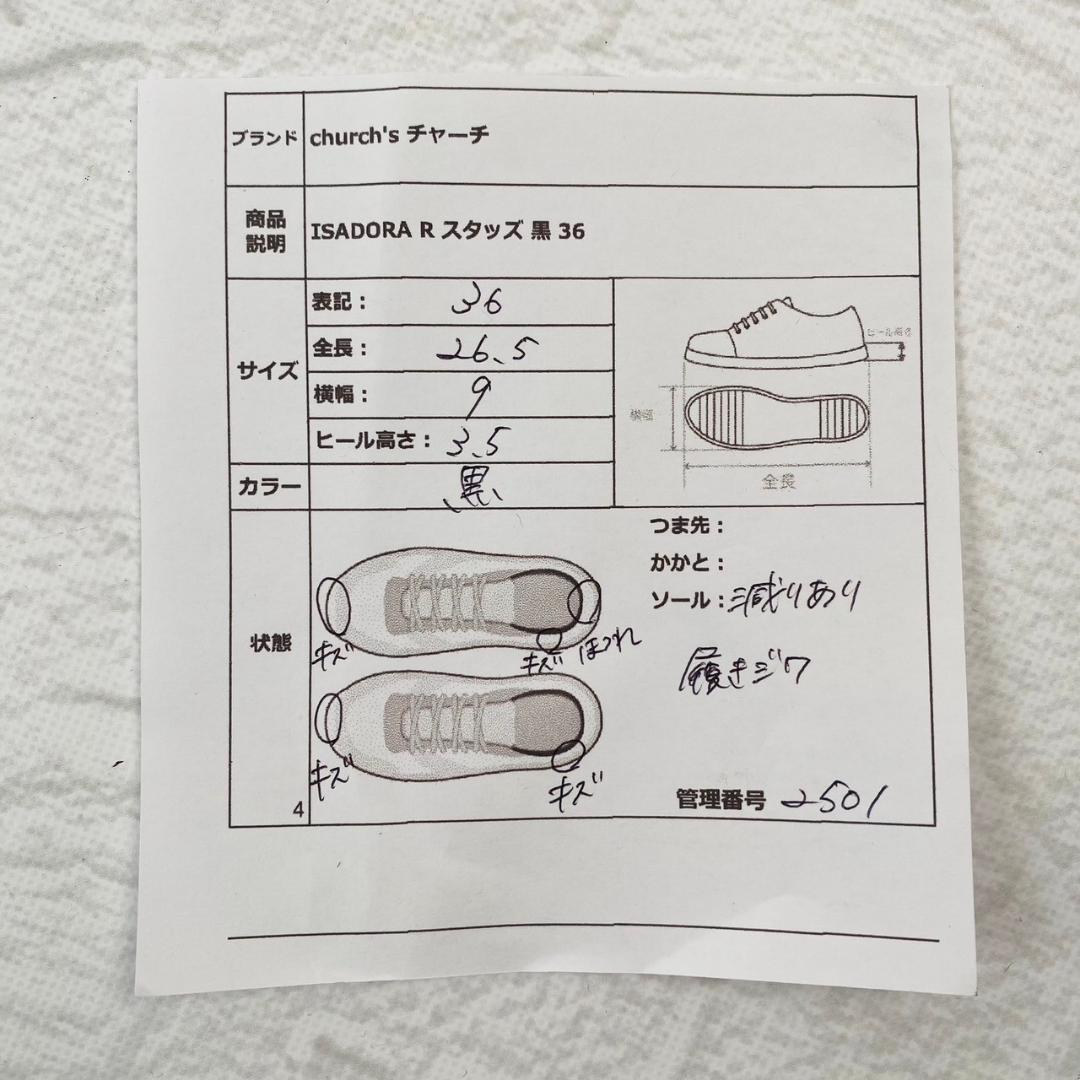 ブランド church's チャーチ
商品
説明
ISADORA R スタッズ 黒 36
サイズ
表記： 36
全長： 26.5
横幅： 9
ヒール高さ： 3.5
ヒール高さ
横幅
全長
カラー 黒
状態
つま先：
かかと：
ソール：減りあり
履きジワ
キズ
キズ ほつれ
キズ
キズ
管理番号 2501
4